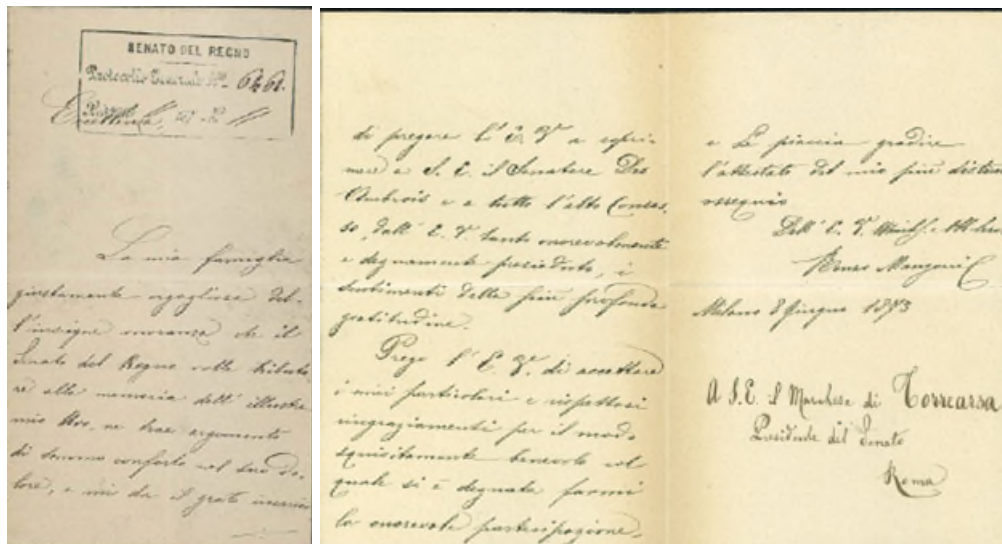 SENATO DEL REGNO
Protocollo Generale N.
Eccellenza,
La mia famiglia
giustamente orgogliosa del-
l'insigne onoranza che il
Senato del Regno volle tributa-
re alla memoria dell'illustre
mio Avo, ne trae argomento
di sommo conforto nel suo do-
lore, e mi dà il grato incarico
di pregare l'E. V. a espri-
mere a S. E. il Senatore Des
Ambrois e a tutto l'alto Conses-
so, dall'E. V. tanto onorevolmente
e degnamente presieduto, i
sentimenti della più profonda
gratitudine.
Prego l'E. V. di accettare
i miei particolari e rispettosi
ringraziamenti per il modo
squisitamente benevolo col
quale si è degnata farmi
la onorevole partecipazione,
e Le piaccia gradire
l'attestato del mio più distinto
ossequio
Dell'E. V.
Manzoni
Milano 8 Giugno 1873
A S. E. il Marchese di Torrearsa
Presidente del Senato
Roma